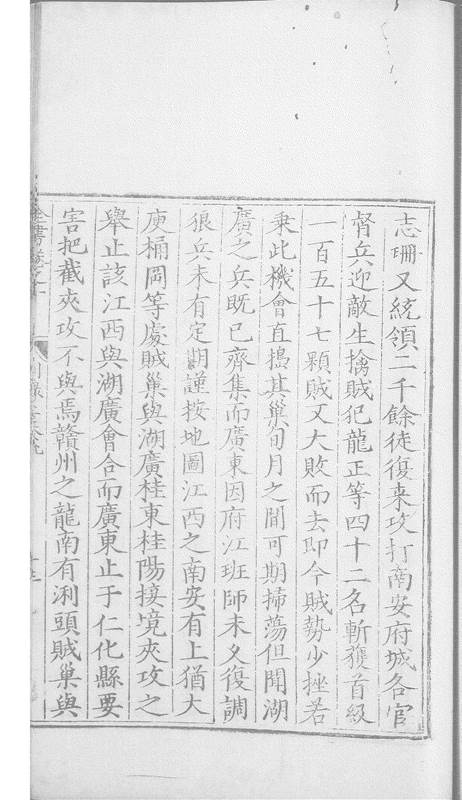 志珊又統領二千餘徒復来攻打南安府城各官
督兵迎敵生擒賊犯龍正等四十二名斬獲首級
一百五十七顆賊又大敗而去即今賊勢少挫若
乗此機會直搗其巢旬月之間可期掃蕩但聞湖
廣之兵既已齊集而廣東因府江班師未乆復調
狼兵未有定期謹按地圖江西之南安有上猶大
庾桶岡等處賊巢與湖廣桂東桂陽接境夾攻之
舉止該江西與湖廣會合而廣東止于仁化縣要
害把截夾攻不與焉贑州之龍南有浰頭賊巢與
全書